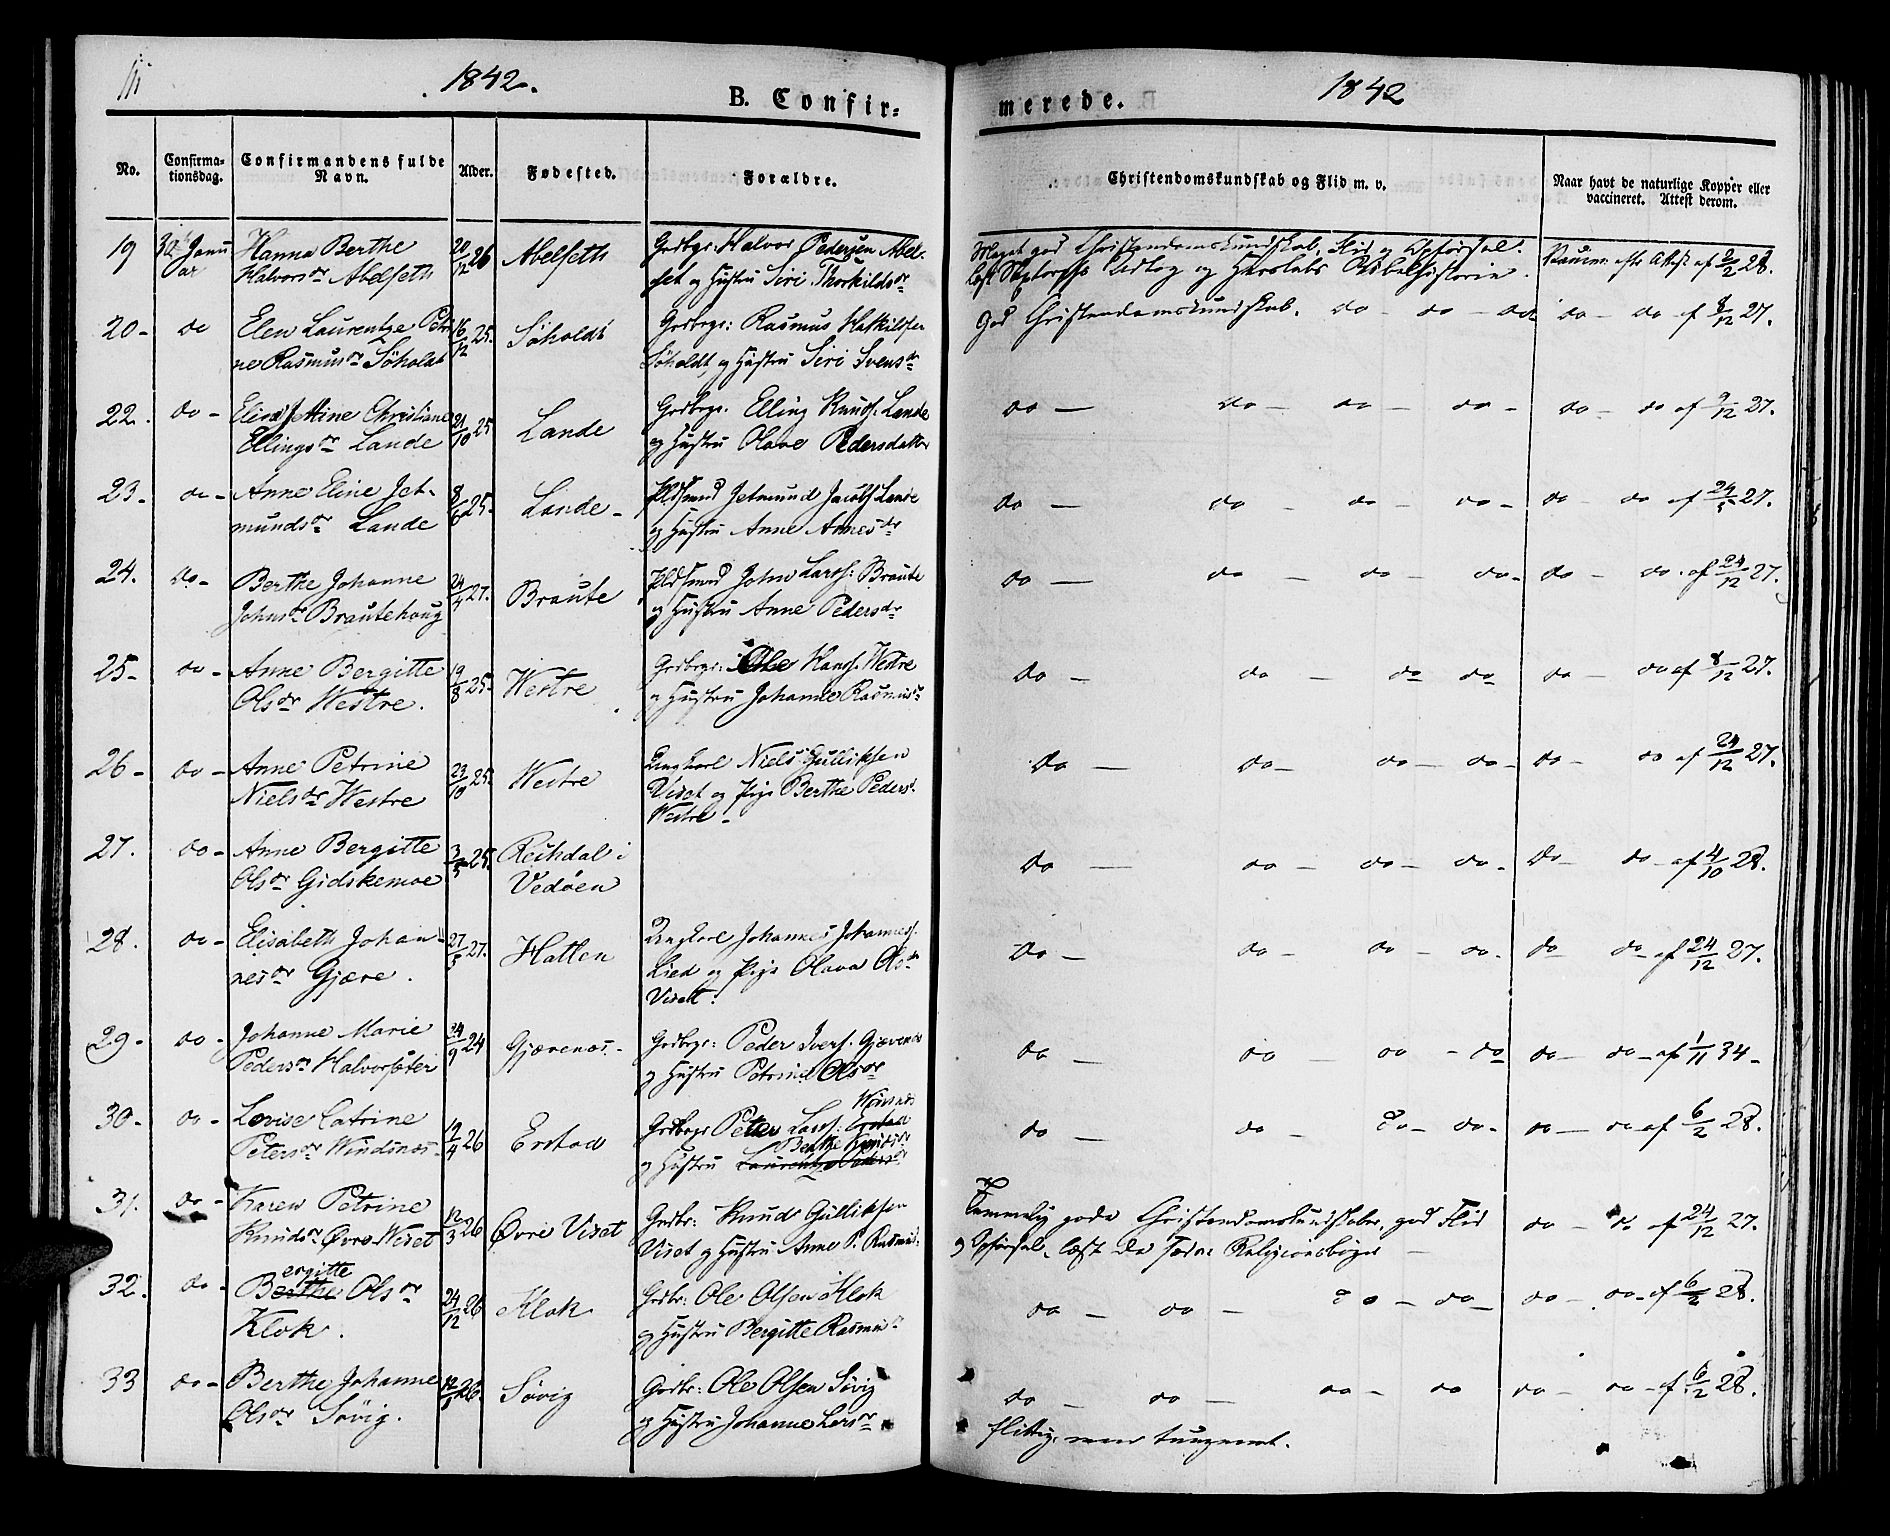 1842.
B. Confir=
No.
Confirma-
tionsdag.
Confirmandens fulde
Navn.
Alder.
Fødested.
Forældre.
19 Hanna Berthe 20/12 26 Abelseth Grdbrgr: Halvor Pedersen Abel-
Halvorsdr Abelseth set og Hustru Siri Thorkildsdr
20- do Elen Laurentze Petri 16/12 25. Søholdt Grdbrgr: Rasmus
ne Rasmusdr Søholdt Søholdt, og Hustru Siri Svensdr
22. do - Christiane 21/10 25 Lande Grdbrgr. Elling Knuds. Lande
Ellingsdr Lande og Hustru Olave Pedersdatter
23- do - Anne Eline Jet- 25- Lande- Jetmund Jacobs. Lande
mundsdr Lande og Hustru Anne
24. do- Berthe Johanne 24/4 27. Braute John Larss: Braute
Johnsdr Brautehoug og Hustru Anne Pedersdr
25- do - Anne Bergitte 19/8 25- Westre Grdbrgr: Ole Hans. Westre
Olsdr Westre. og Hustru Johanne Rasmusd
26- do - Anne Petrine 23/10 25- Westre Ungkarl Niels Gulliksen
Nielsdr Westre Viset og Pige Berthe Peders.
Westre-
27. do - Anne Bergitte 3/5 25. i
Olsdr Gidskemoe Vedøen
28. do - Elisabeth Johan- 27/5 27. Hatlen Ungkarl Johannes Johanness.
nesdr Gjære. Lied og Pige Olava Olsdr
Viset.
29- do - Johanne Marie 24/9 24 Gjævenes- Grdbrgr: Peder Ivers. Gjævenes
Pedersdr Halvorsæter og Hustru Petrine Olsdr
30- do- Lovise Catrine 19/4 26 Erstad Grdbrgr Peter Larss: Erstad
Petersdr Windsnæs- og Hustru Berthe Knudsdr
31. do - Karen Petrine 12/3 26 Øvre Viset Grdbr: Knud Gulliksen
Knudsdr Øvre Weset Viset og Hustru Anne P. Rasmusd:
32. do - Bergitte Berthe Olsdr 24/12 26 Klok Grdbr: Ole Olsen Klok
Klok. og Hustru Bergitte Rasmusd
33 do - Berthe Johanne 26. Søvig Grdbr: Ole Olsen Søvig
Olsdr Søvig. og Hustru Johanne Larsdr
1842
merede.
Christendomskundskab og Flid m. v.
Naar havt de naturlige Kopper eller
vaccineret. Attest derom.
Meget god Christendomskundskab, Flid og Opførsel. Vaccin: efter Attest af 2/2 28.
læst Udtog og Herslebs Bibelhistorie.
God Christendomskundskab. do - do - do do - do af 8/12 27.
do - do - do - do - do - do af 9/12 27.
do - do - do - do - do - do af 24/5 27.
do - do - do - do- do - do. af 24/12 27.
do - do - do do do - do af 8/12 27.
do - do - do - do - do - do af 24/12 27.
do - do - do - do- do - do - af 4/10 28.
do - do - do - do - do do - af 24/12 27.
do - do - do - do do - do - af 1/11 34-
do - do - do - do- do - do af 6/2 28.
Temmelig gode Christendomskundskaber, god Flid do - do af 24/12 27.
og Opførsel, læst de Religionsbøger -
do - do - do - do do - do - af 6/2 28.
do - do - do - do do - do - af 6/2 28.
flittig, men tungnemt.